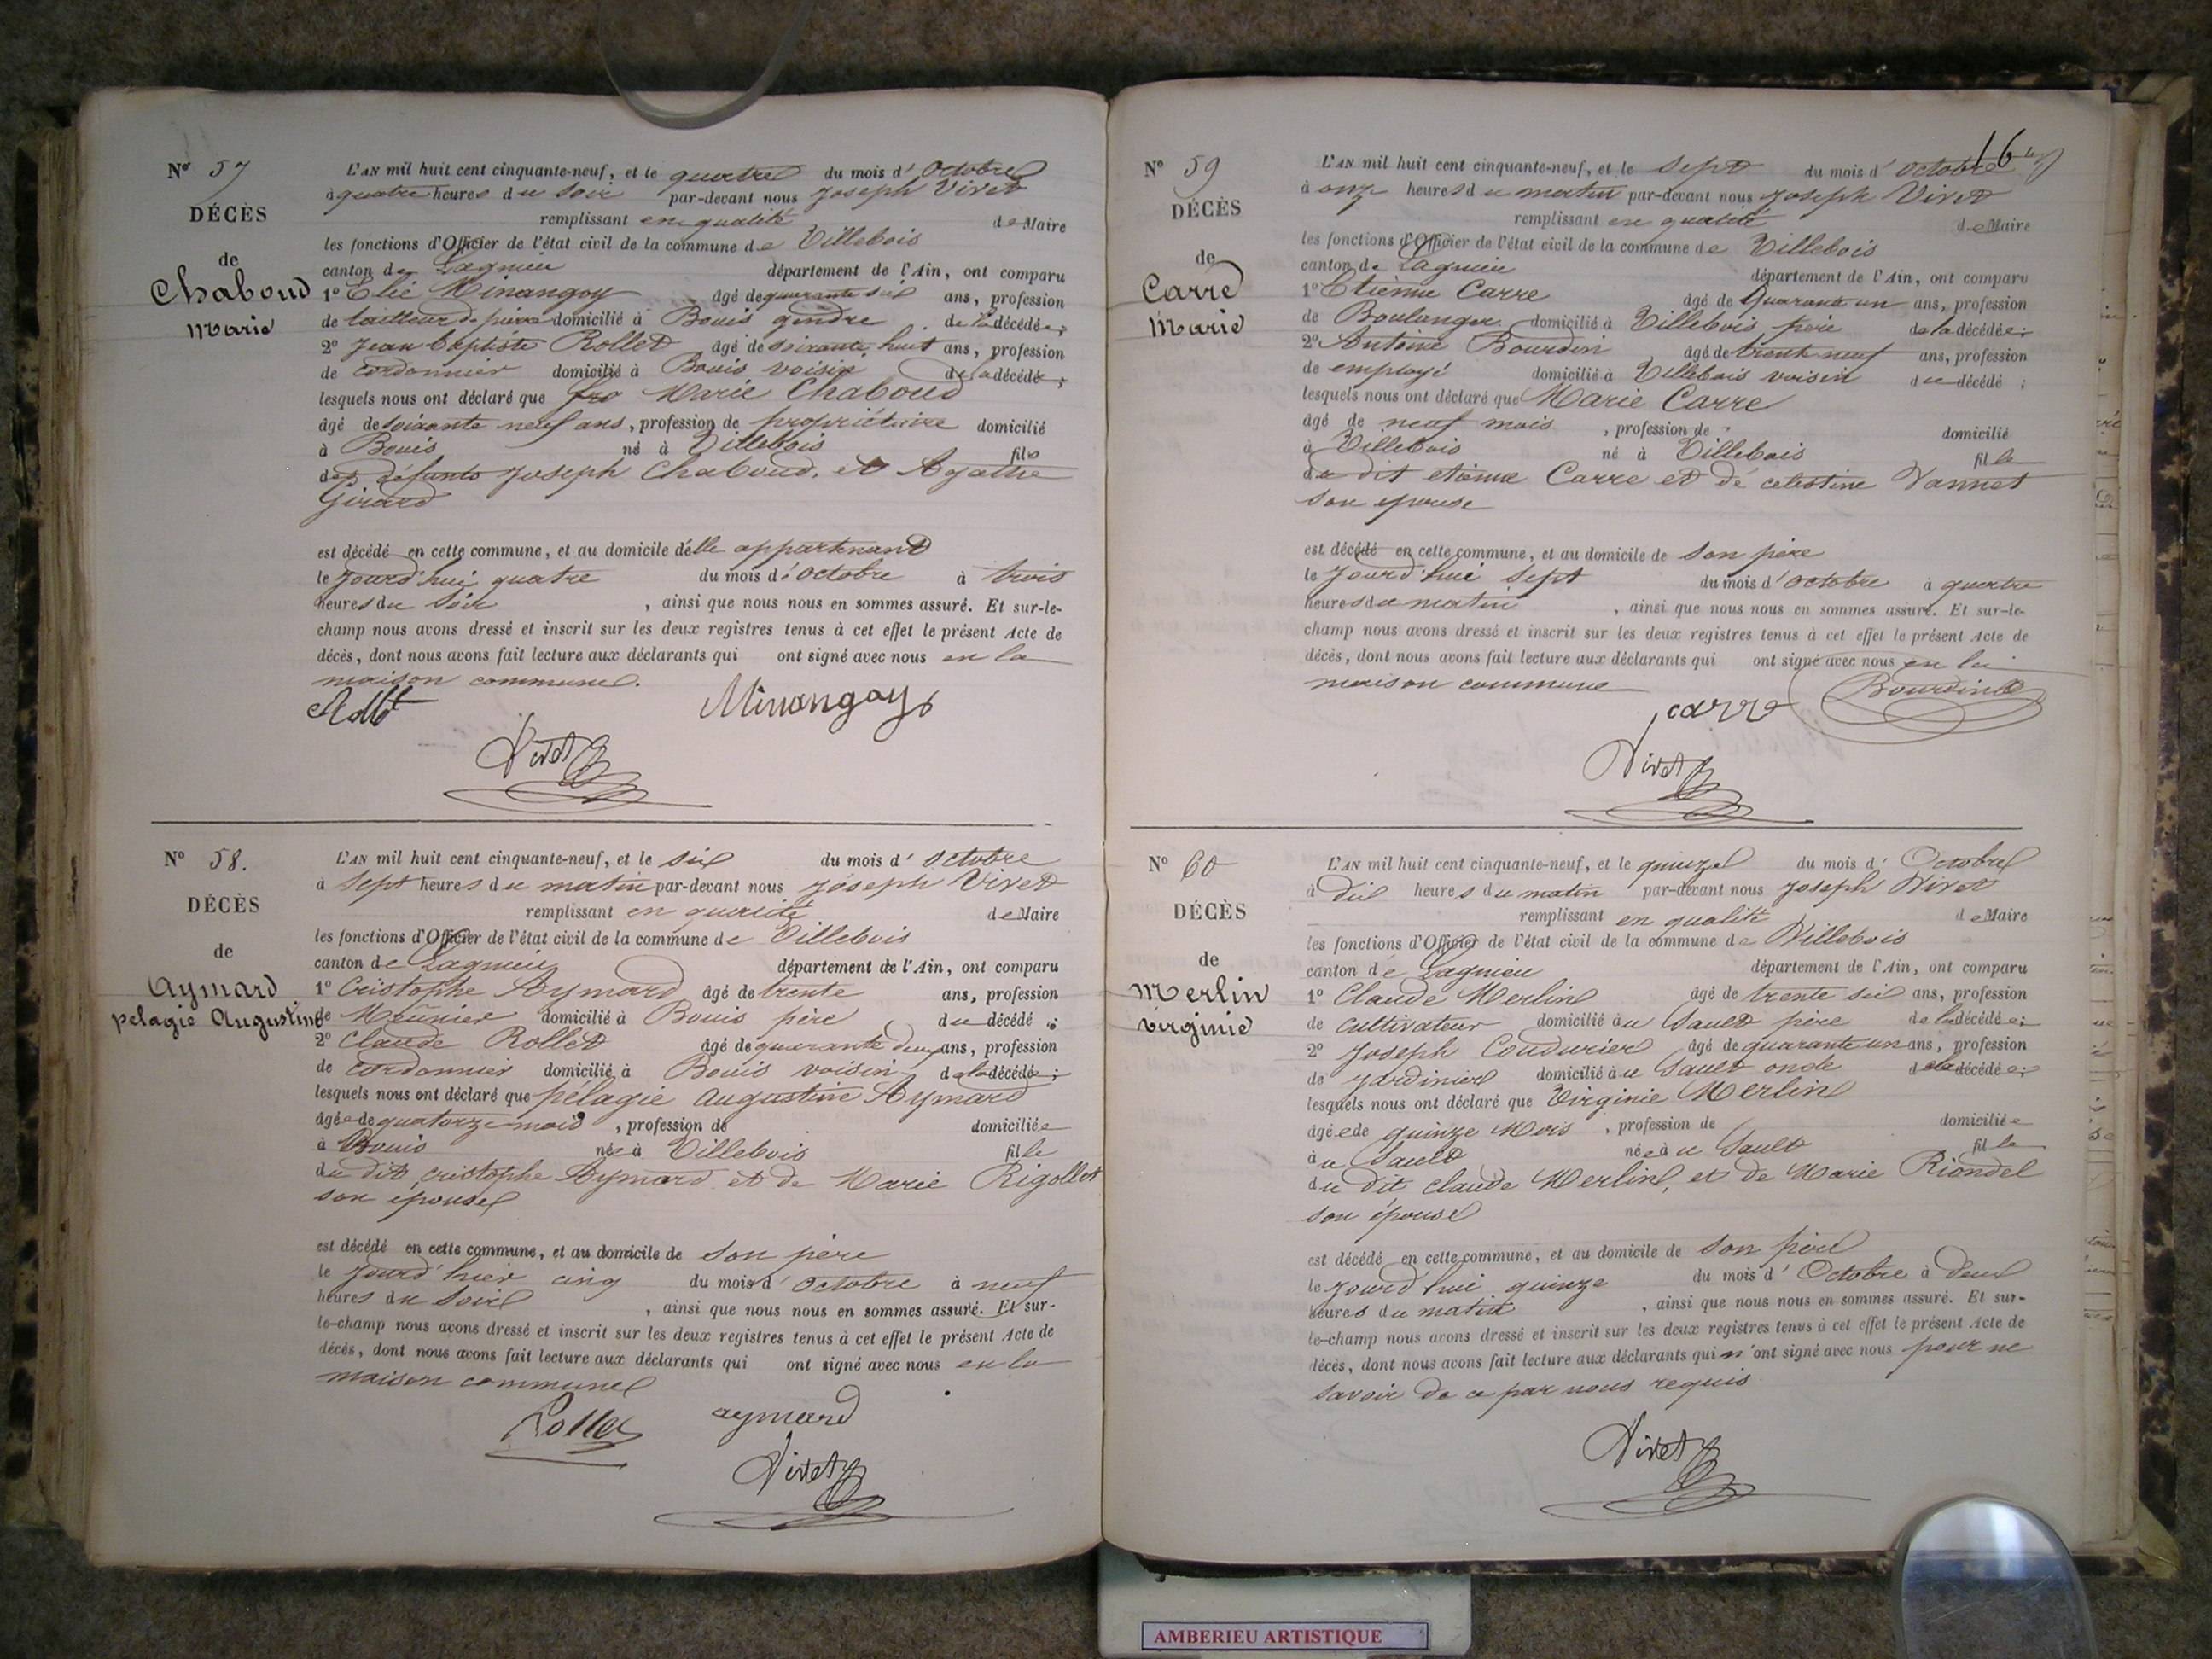 Nº 57
DÉCÈS
de
Chaboud
Marie
L'AN mil huit cent cinquante-neuf, et le quatre du mois d'Octobre
à quatre heures du soir par-devant nous Joseph Vivet
remplissant en qualité de Maire
les fonctions d'Officier de l'état civil de la commune de Villebois
canton de Lagnieu département de l'Ain, ont comparu
1º Elie Minangoy âgé de quarante six ans, profession
de tailleur de pierre domicilié à Bouis gendre de la décédée;
2º Jean Baptiste Rollet âgé de soixante huit ans, profession
de cordonnier domicilié à Bouis voisin de la décédée;
lesquels nous ont déclaré que Marie Chaboud
âgé de soixante neuf ans, profession de propriétaire domicilié
à Bouis né à Villebois fille
des défunts Joseph Chaboud, et Agathe
Girard
est décédé en cette commune, et au domicile d'elle appartenant
le jourd'hui quatre du mois d'Octobre à trois
heures du soir, ainsi que nous nous en sommes assuré. Et sur-le-
champ nous avons dressé et inscrit sur les deux registres tenus à cet effet le présent Acte de
décès, dont nous avons fait lecture aux déclarants qui ont signé avec nous en la
maison commune.
Rollet Minangoy
Vivet
Nº 58.
DÉCÈS
de
Aymard
pelagie Augustine
L'AN mil huit cent cinquante-neuf, et le six du mois d'octobre
à sept heures du matin par-devant nous Joseph Vivet
remplissant en qualité de Maire
les fonctions d'Officier de l'état civil de la commune de Villebois
canton de Lagnieu département de l'Ain, ont comparu
1º Cristophe Aymard âgé de trente ans, profession
de Meunier domicilié à Bouis père du décédé;
2º Claude Rollet âgé de quarante deux ans, profession
de cordonnier domicilié à Bouis voisin de la décédée;
lesquels nous ont déclaré que pélagie augustine Aymard
âgée de quatorze mois, profession de domiciliée
à Bouis née à Villebois fille
du dit cristophe Aymard et de Marie Rigollet
son épouse
est décédé en cette commune, et au domicile de son père
le jourd'hier cinq du mois d'octobre à neuf
heures du soir, ainsi que nous nous en sommes assuré. Et sur-
le-champ nous avons dressé et inscrit sur les deux registres tenus à cet effet le présent Acte de
décès, dont nous avons fait lecture aux déclarants qui ont signé avec nous en la
maison commune
Rollet aymard
Vivet
16
Nº 59
DÉCÈS
de
Carre
Marie
L'AN mil huit cent cinquante-neuf, et le sept du mois d'octobre
à onze heures du matin par-devant nous Joseph Vivet
remplissant en qualité de Maire
les fonctions d'Officier de l'état civil de la commune de Villebois
canton de Lagnieu département de l'Ain, ont comparu
1º Etienne Carre âgé de Quarante un ans, profession
de Boulanger domicilié à Villebois père de la décédée;
2º Antoine Bourdin âgé de trente neuf ans, profession
de employé domicilié à Villebois voisin du décédé;
lesquels nous ont déclaré que Marie Carre
âgé de neuf mois, profession de domicilié
à Villebois né à Villebois fille
du dit etienne Carre et de celestine Vannet
son epouse
est décédé en cette commune, et au domicile de son père
le jourd'hui sept du mois d'octobre à quatre
heures du matin, ainsi que nous nous en sommes assuré. Et sur-le-
champ nous avons dressé et inscrit sur les deux registres tenus à cet effet le présent Acte de
décès, dont nous avons fait lecture aux déclarants qui ont signé avec nous en la
maison commune
carre Bourdin
Vivet
Nº 60
DÉCÈS
de
Merlin
virginie
L'AN mil huit cent cinquante-neuf, et le quinze du mois d'Octobre
à dix heures du matin par-devant nous Joseph Vivet
remplissant en qualité de Maire
les fonctions d'Officier de l'état civil de la commune de Villebois
canton de Lagnieu département de l'Ain, ont comparu
1º Claude Merlin âgé de trente six ans, profession
de cultivateur domicilié au Sault père de la décédée;
2º Joseph Coudurier âgé de quarante un ans, profession
de jardinier domicilié au Sault oncle de la décédée;
lesquels nous ont déclaré que Virginie Merlin
âgée de quinze Mois, profession de domiciliée
au Sault née au Sault fille
du dit claude Merlin, et de Marie Riondel
son épouse
est décédé en cette commune, et au domicile de son père
le jourd'hui quinze du mois d'Octobre à deux
heures du matin, ainsi que nous nous en sommes assuré. Et sur-
le-champ nous avons dressé et inscrit sur les deux registres tenus à cet effet le présent Acte de
décès, dont nous avons fait lecture aux déclarants qui n'ont signé avec nous pour ne
savoir de ce par nous requis
Vivet
AMBERIEU ARTISTIQUE